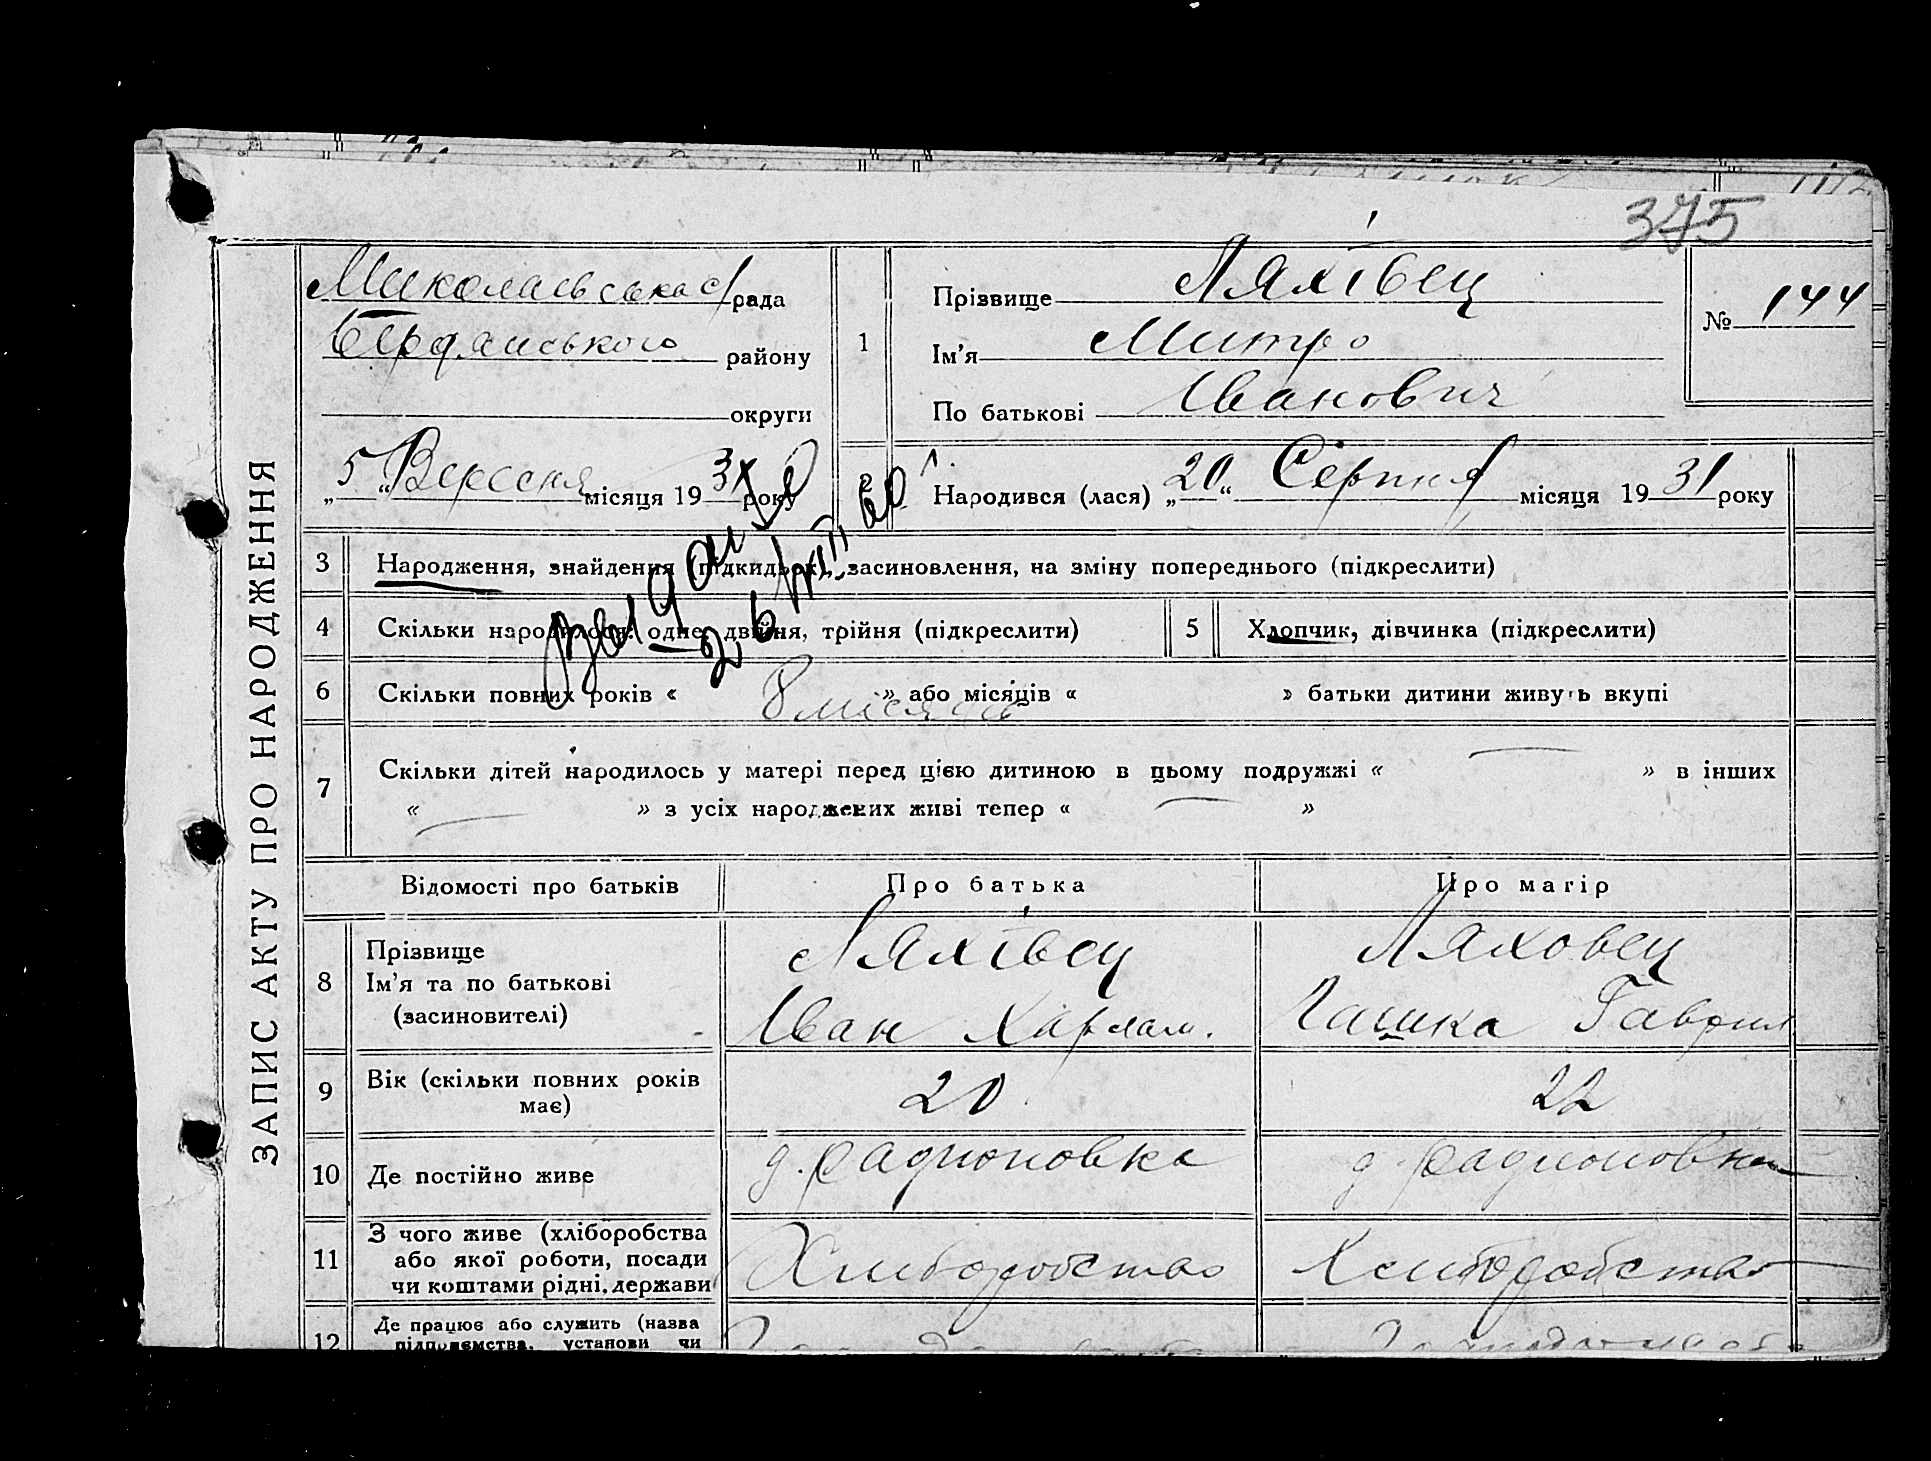 375
ЗАПИС АКТУ ПРО НАРОДЖЕННЯ
Миколаєвська с/рада
Бердянського району
округи
„5“ Вересня місяця 1931 року
1
Прізвище Ляхівец
Ім’я Митро
По батькові Іванович
№ 144
2
Народився (лася) „20“ Серпня місяця 1931 року
3 Народження, знайдення (підкидьок), засиновлення, на зміну попереднього (підкреслити)
4 Скільки народилося: одне, двійня, трійня (підкреслити)
5 Хлопчик, дівчинка (підкреслити)
6 Скільки повних років « 8 місяців » або місяців « » батьки дитини живуть вкупі
7 Скільки дітей народилось у матері перед цією дитиною в цьому подружжі « — » в інших
« — » з усіх народжених живі тепер « — »
Відомості про батьків Про батька Про матір
8 Прізвище
Ім’я та по батькові
(засиновителі)
Ляхівец
Іван Харлам.
Ляховец
Пашка Гаврил
9 Вік (скільки повних років має) 20 22
10 Де постійно живе д. Радионовка д. Радионовка
11 З чого живе (хліборобства
або якої роботи, посади
чи коштами рідні, держави
Хлиборобство Хлиборобство
12 Де працює або служить (назва
підприємства, установи чи